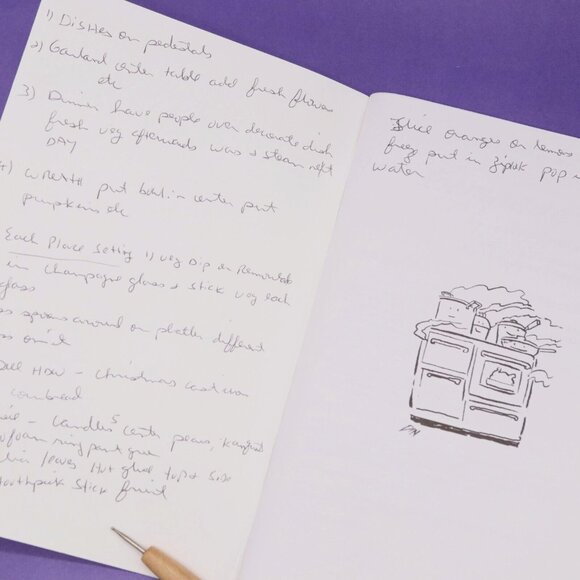 1) Dishes on pedestals
2) Garland center table add fresh flowers
etc
3) Dinner have people over decorate dish
fresh veg afterwards wash & steam next
DAY
4) WREATH put bowl in center put
pumpkins etc
Each Place Setting 1) veg Dip or Remoulade
in champagne glass & stick veg each
glass
spoons around on platter different
on it
How - Christmas cast iron
cornbread
Candles center pears,
foam ring paint green
leaves Hot glue top & side
toothpick stick fruit
Slice oranges or lemons
put in ziplok pop
water